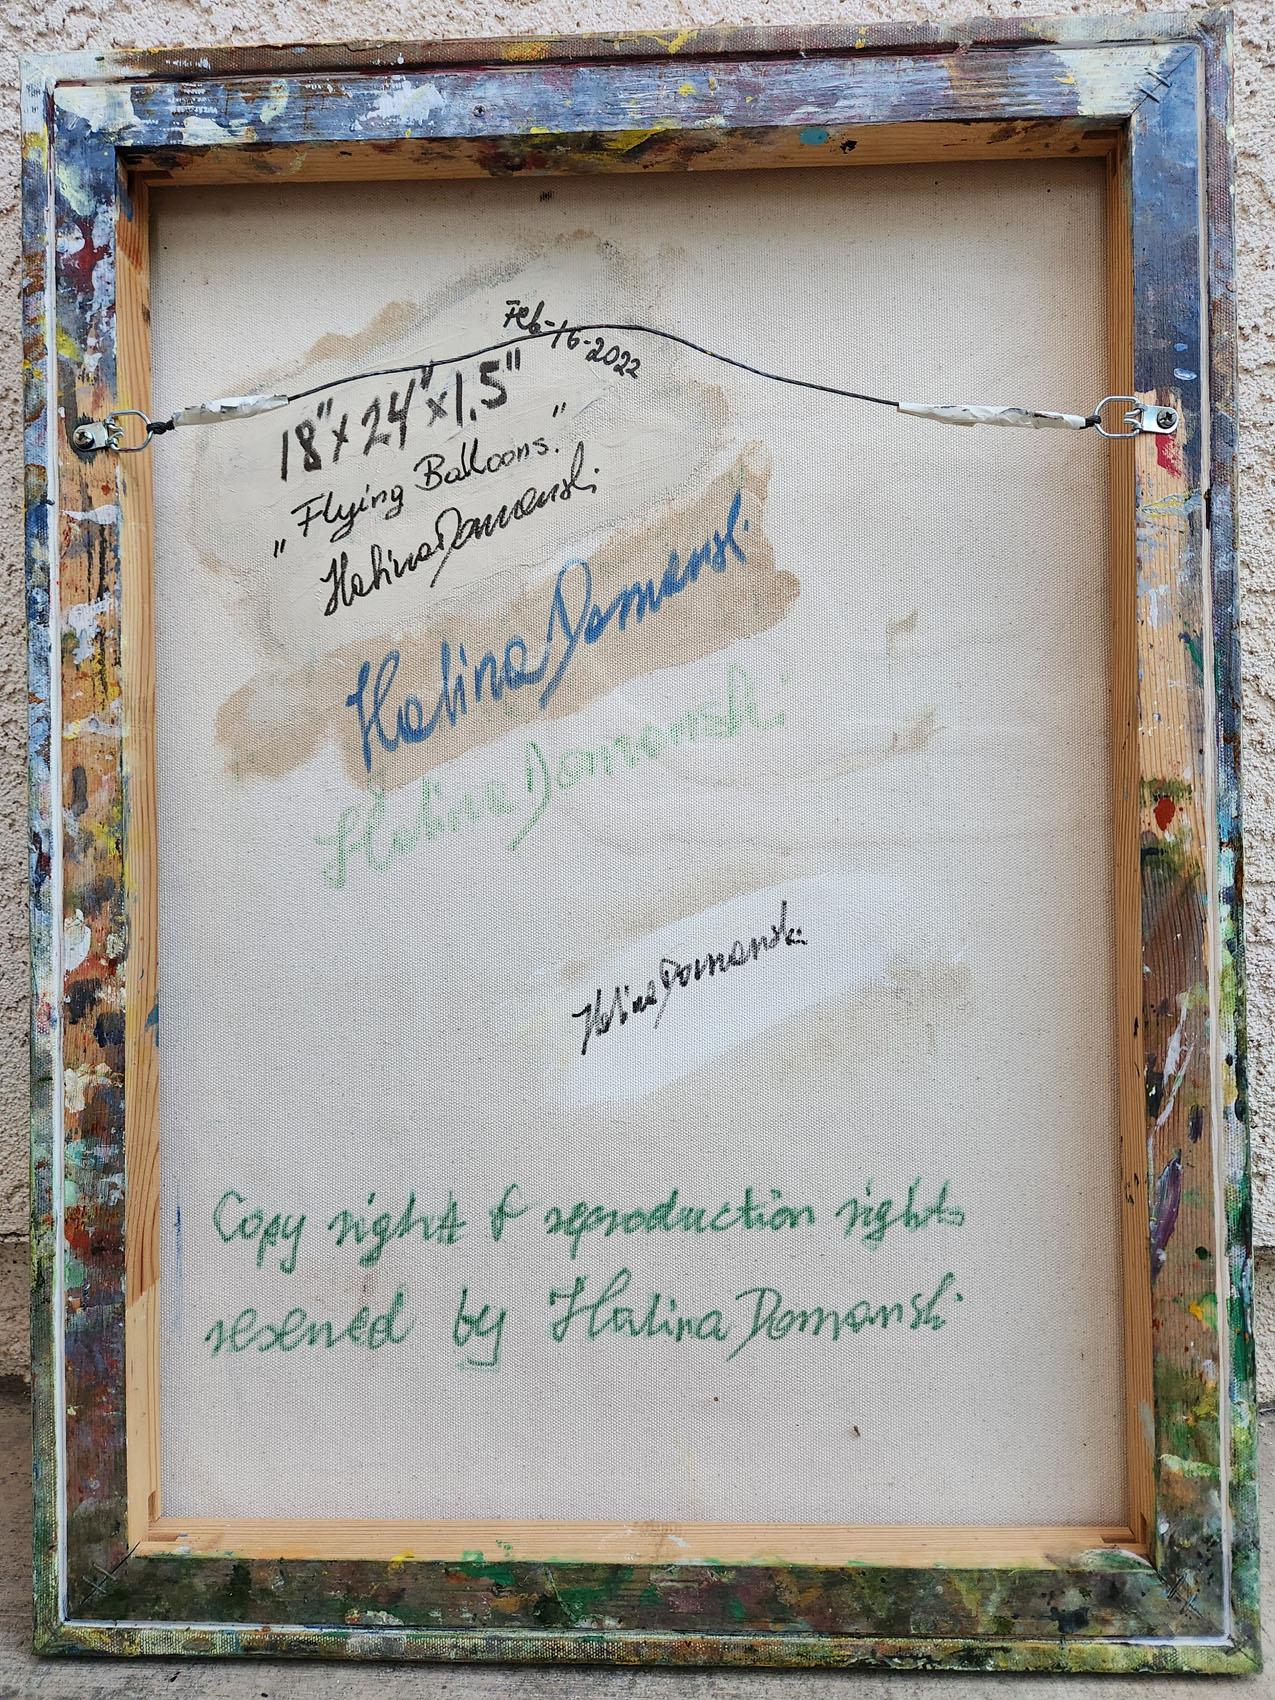 Feb-16-2022
18"x 24"x1.5"
"Flying Balloons."
Halina Domanski
Halina Domanski
Halina Domanski
Halina Domanski
Copy right & reproduction rights
reserved by Halina Domanski